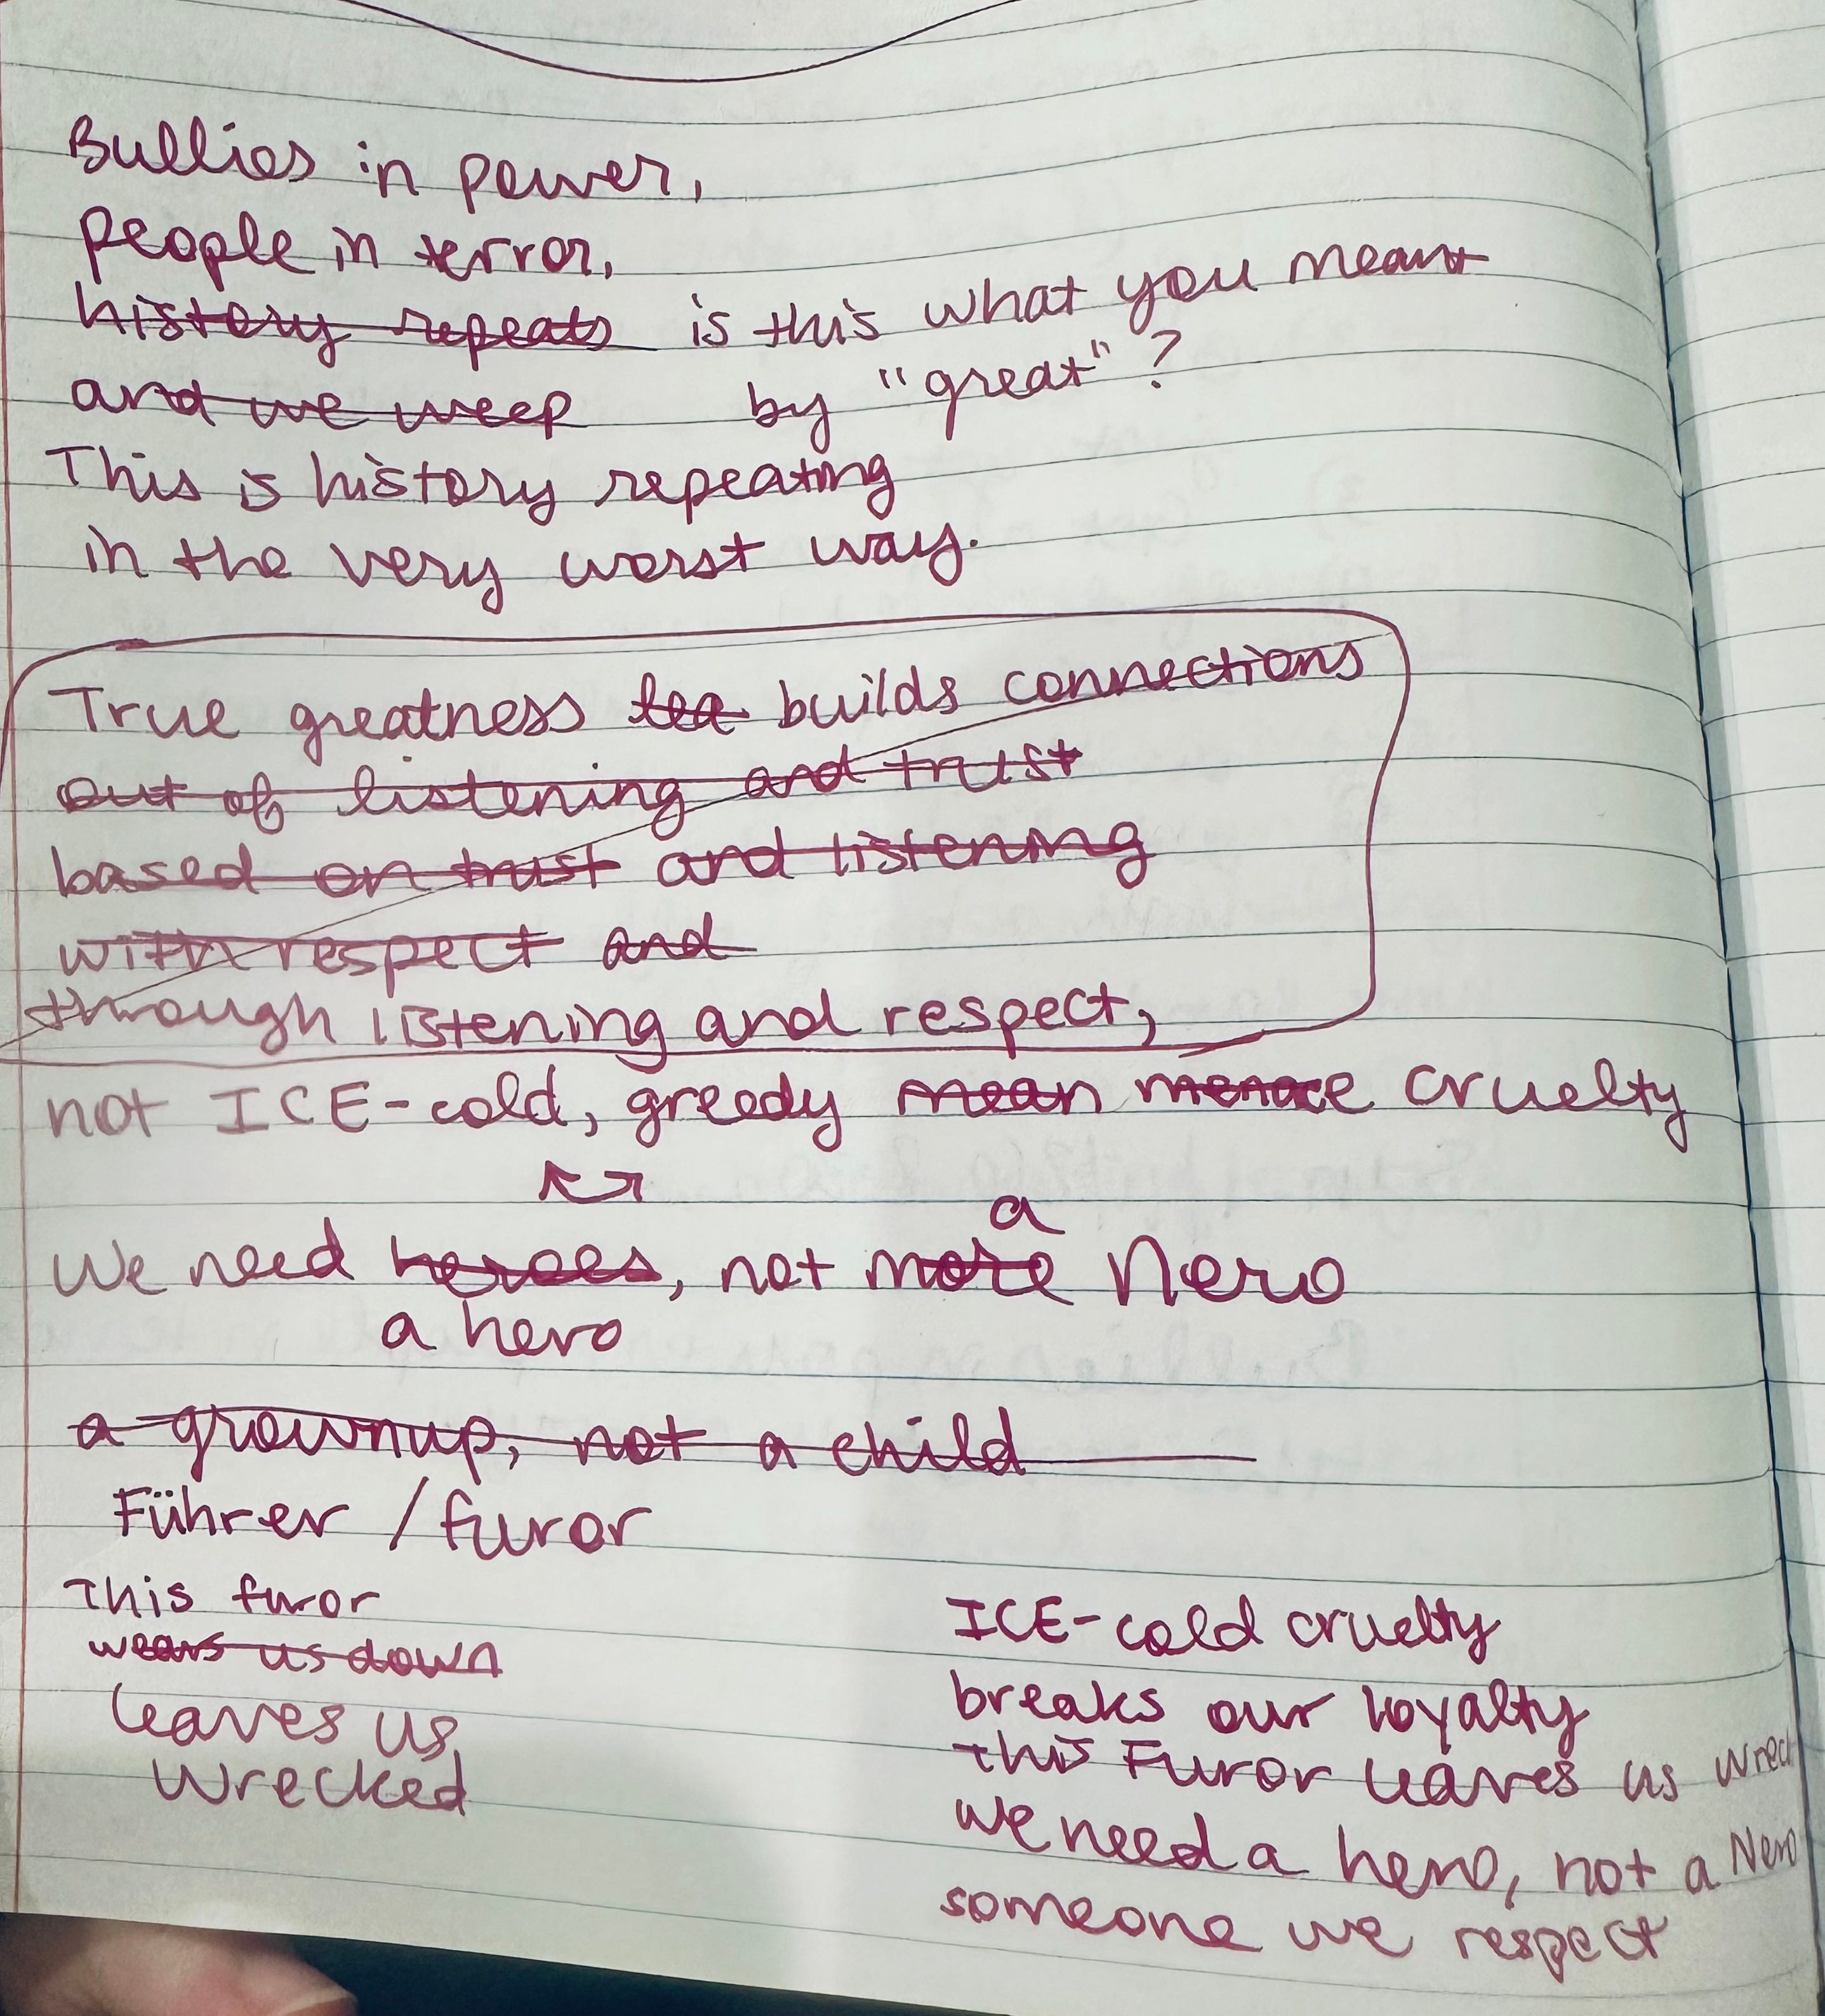 Bullies in power,
people in terror,
history repeats is this what you meant
and we weep by "great"?
This is history repeating
in the very worst way.
True greatness tea builds connections
out of listening and trust
based on trust and listening
with respect and
through listening and respect,
not ICE-cold, greedy mean menace cruelty
a
We need heroes, not more Nero
a hero
a grownup, not a child
Führer / furor
This furor
wears us down
leaves us
wrecked
ICE-cold cruelty
breaks our loyalty
this Furor leaves us wreck
we need a hero, not a Nero
someone we respect